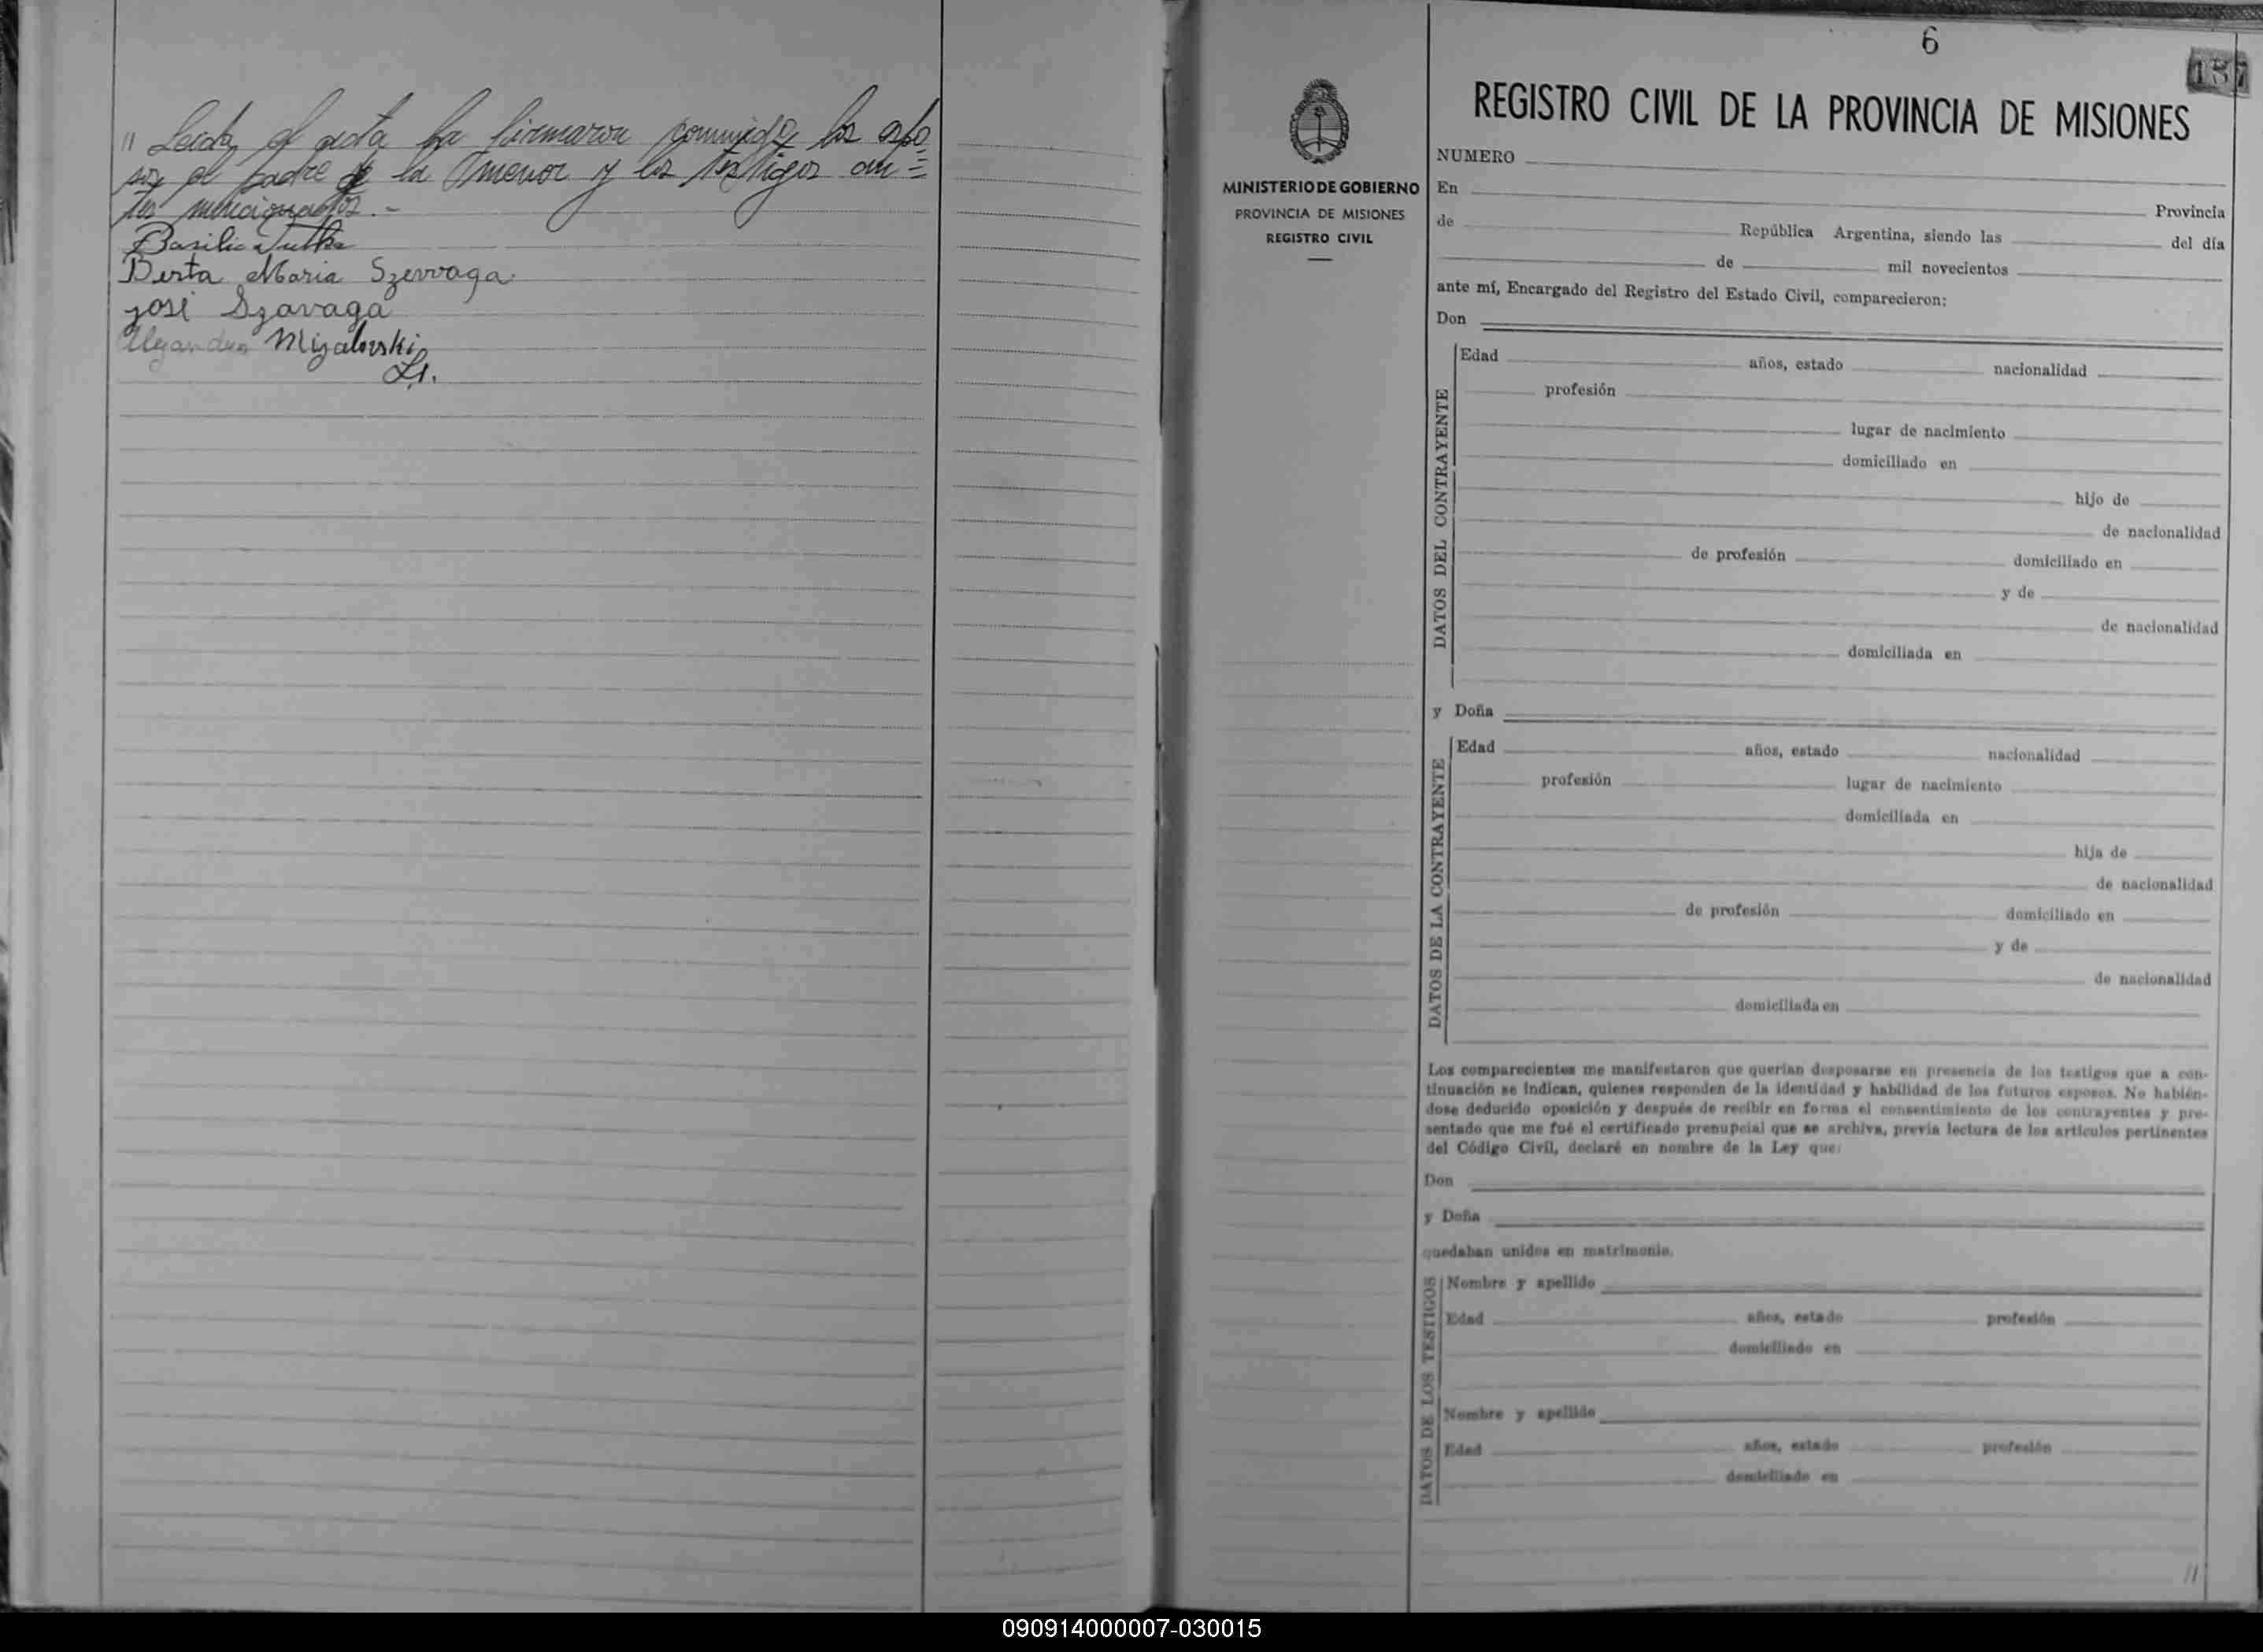 " Leida el acta la firmaron conmigo los espo
sos el padre de la menor y los testigos an=
tes mencionados.-
Basilio
Berta Maria Szewaga
José Szavaga
Alejandro Mizalovski
6
187
REGISTRO CIVIL DE LA PROVINCIA DE MISIONES
MINISTERIO DE GOBIERNO
PROVINCIA DE MISIONES
REGISTRO CIVIL
NUMERO
En Provincia
de República Argentina, siendo las del día
de mil novecientos
ante mí, Encargado del Registro del Estado Civil, comparecieron:
Don
DATOS DEL CONTRAYENTE
Edad años, estado nacionalidad
profesión
lugar de nacimiento
domiciliado en
hijo de
de nacionalidad
de profesión domiciliado en
y de
de nacionalidad
domiciliada en
y Doña
DATOS DE LA CONTRAYENTE
Edad años, estado nacionalidad
profesión lugar de nacimiento
domiciliada en
hija de
de nacionalidad
de profesión domiciliado en
y de
de nacionalidad
domiciliada en
Los comparecientes me manifestaron que querían desposarse en presencia de los testigos que a con-
tinuación se indican, quienes responden de la identidad y habilidad de los futuros esposos. No habién-
dose deducido oposición y después de recibir en forma el consentimiento de los contrayentes y pre-
sentado que me fué el certificado prenupcial que se archiva, previa lectura de los artículos pertinentes
del Código Civil, declaré en nombre de la Ley que:
Don
y Doña
quedaban unidos en matrimonio.
DATOS DE LOS TESTIGOS
Nombre y apellido
Edad años, estado profesión
domiciliado en
Nombre y apellido
Edad años, estado profesión
domiciliado en
//
090914000007-030015